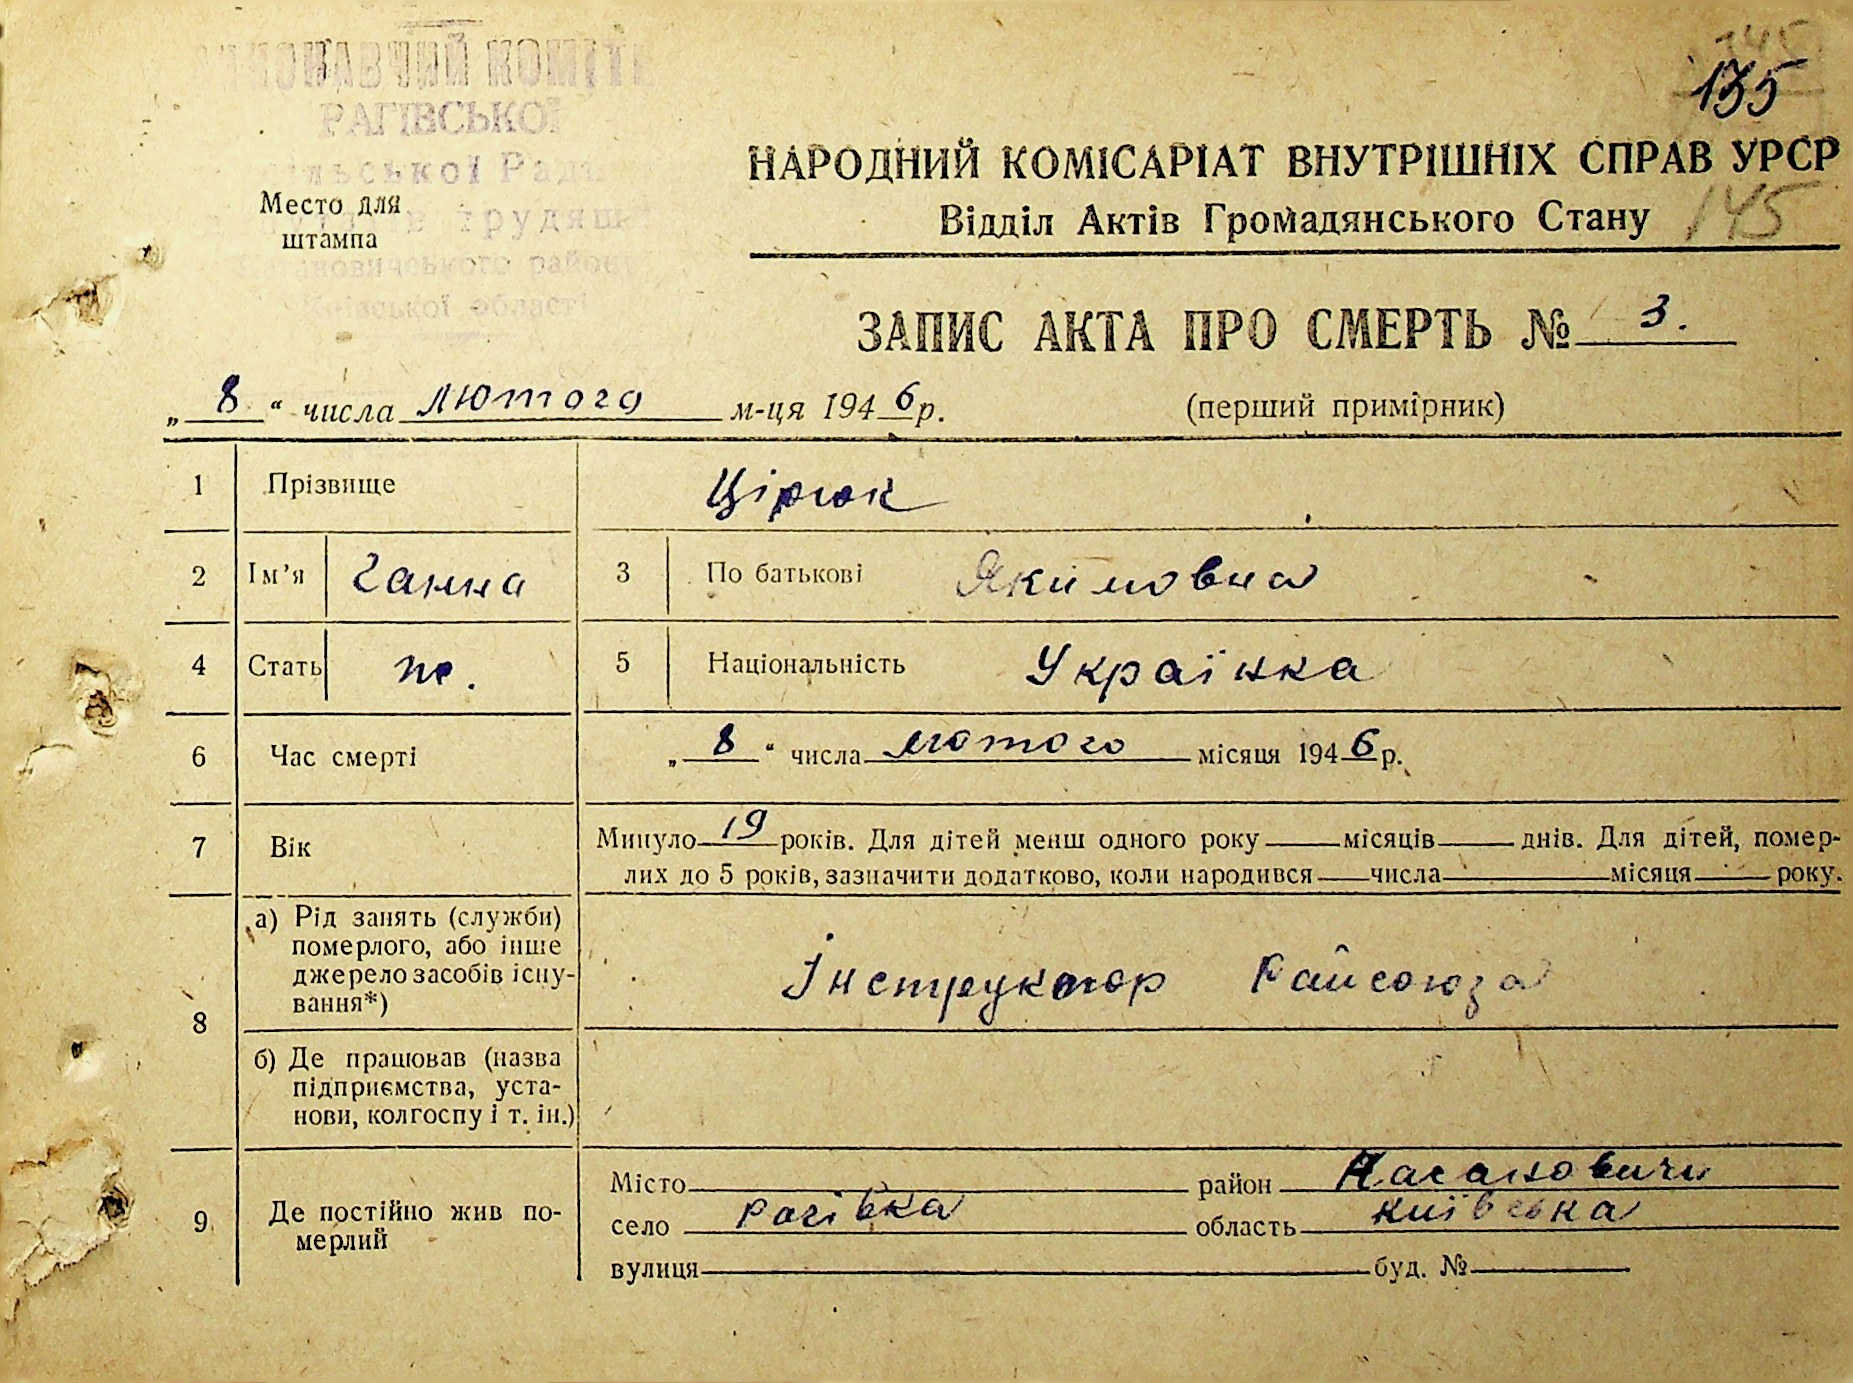 РАГІВСЬКОЇ
145
135
НАРОДНИЙ КОМІСАРІАТ ВНУТРІШНІХ СПРАВ УРСР
Відділ Актів Громадянського Стану
145
Место для
штампа
ЗАПИС АКТА ПРО СМЕРТЬ № 3.
„ 8 “ числа лютого м-ця 1946 р.
(перший примірник)
1 Прізвище Цірюк
2 Ім’я Ганна 3 По батькові Якимовна
4 Стать ж. 5 Національність Українка
6 Час смерті „ 8 “ числа лютого місяця 1946 р.
7 Вік Минуло 19 років. Для дітей менш одного року місяців днів. Для дітей, помер-
лих до 5 років, зазначити додатково, коли народився числа місяця року.
8 а) Рід занять (служби)
померлого, або інше
джерело засобів існу-
вання*)
Інструктор Райсоюза
б) Де працював (назва
підприємства, уста-
нови, колгоспу і т. ін.)
9 Де постійно жив по-
мерлий
Місто район
село Рагівка область Київська
вулиця буд. №